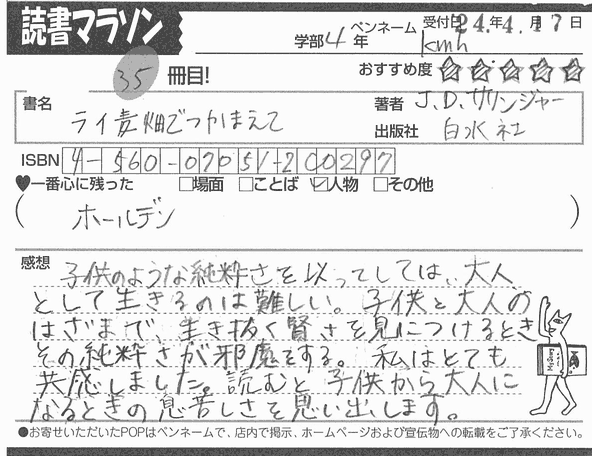 読書マラソン
学部4年 ペンネーム kmh 受付日 24.4.17日
35冊目!
おすすめ度 ☆☆☆☆☆
書名 ライ麦畑でつかまえて
著者 J.D.サリンジャー
出版社 白水社
ISBN 4-560-07051-2 C0297
♥一番心に残った □場面 □ことば ☑人物 □その他
(ホールデン)
感想 子供のような純粋さを以ってしては、大人
として生きるのは難しい。子供と大人の
はざまで、生き抜く賢さを見につけるとき
その純粋さが邪魔をする。私はとても
共感しました。読むと子供から大人に
なるときの息苦しさを思い出します。
●お寄せいただいたPOPはペンネームで、店内で掲示、ホームページおよび宣伝物への転載をご了承ください。